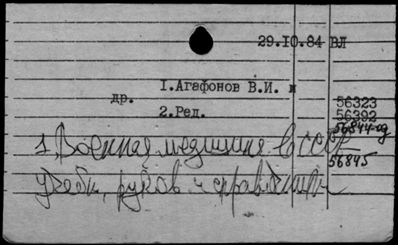 29.10.84 ВЛ
1.Агафонов В.И. и
др.
2.Ред.
56323
56392
56844-од
1. Военная медицина СССР
56845
учебн, руков и справочники